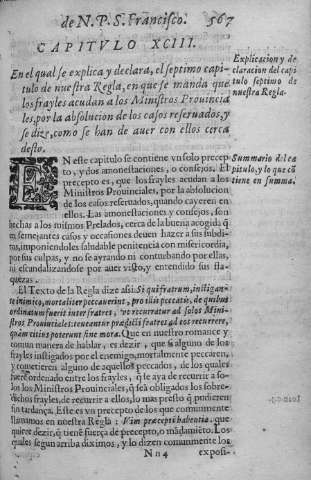 de N. P. S. Francisco. 567
CAPITVLO XCIII.
En el qual se explica y declara, el septimo capi-
tulo de nuestra Regla, en que se manda que
los frayles acudan a los Ministros Provincia
les, por la absolucion de los casos reservados, y
se dize, como se han de aver con ellos cerca
desto.
Explicacion y de
claracion del capi
tulo septimo de
nuestra Regla.
EN este capitulo se contiene vn solo precep
to, y dos amonestaciones, o consejos. El
precepto es, que los frayles acudan a los
Ministros Provinciales, por la absolucion
de los casos reservados, quando cayeren en
ellos. Las amonestaciones y consejos, son
Summario del ca
pitulo, y lo que cō
tiene en summa.
hechas a los mismos Prelados, cerca de la buena acogida q̄
en semejantes casos y occasiones deven hazer a sus subdi-
tos, imponiendoles saludable penitencia con misericordia,
por sus culpas, y no se ayrando ni conturbando por ellas,
ni escandalizandose por aver visto, y entendido sus fla-
quezas.
El Texto de la Regla dize assi. Si qui fratrum, instigan-
te inimico, mortaliter peccaverint, pro illis peccatis, de quibus
ordinatum fuerit inter fratres, vt recurratur ad solos Mini-
stros Provinciales: teneantur prædicti fratres ad eos recurrere,
quam citius poterunt sine mora. Que en nuestro romance y
comun manera de hablar, es dezir, que si alguno de los
frayles instigados por el enemigo, mortalmente peccaren,
y cometieren alguno de aquellos peccados, de los quales
fuere ordenado entre los frayles, q̄ se aya de recurrir a so-
los los Ministros Provinciales, q̄ seā obligados los sobre-
dichos frayles, de recurrir a ellos, lo mas presto q̄ pudieren
sin tardança. Este es vn precepto de los que comunmente
llamamos en nuestra Regla: Vim præcepti habentia. que
quiere dezir, q̄ tiene fuerça de precepto, o mādamiēto. Los
quales segun arriba diximos, y lo dizen comunmente los
Nn 4 exposi-